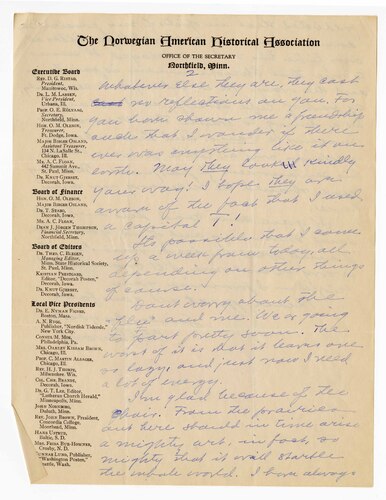 The Norwegian American Historical Association
OFFICE OF THE SECRETARY
Northfield, Minn.
2
Executive Board
REV. D. G. RISTAD,
President,
Manitowoc, Wis.
DR. L. M. LARSEN,
Vice President,
Urbana, Ill.
PROF. O. E. RÖLVAAG,
Secretary,
Northfield, Minn.
HON. O. M. OLESON,
Treasurer,
Ft. Dodge, Iowa.
MAJOR BIRGER OSLAND,
Assistant Treasurer,
134 N. LaSalle St.,
Chicago, Ill.
MR. A. C. FLOAN,
442 Summit Ave.,
St. Paul, Minn.
DR. KNUT GJERSET,
Decorah, Iowa.
Board of Finance
HON. O. M. OLESON,
MAJOR BIRGER OSLAND,
DR. T. STABO,
Decorah, Iowa.
MR. A. C. FLOAN,
DEAN J. JØRGEN THOMPSON,
Financial Secretary,
Northfield, Minn.
Board of Editors
DR. THEO. C. BLEGEN,
Managing Editor,
Minn. State Historical Society,
St. Paul, Minn.
KRISTIAN PRESTGARD,
Editor, "Decorah Posten",
Decorah, Iowa.
DR. KNUT GJERSET,
Decorah, Iowa.
Local Vice Presidents
Boston, Mass.
A. N. RYGG,
Publisher, "Nordisk Tidende,"
New York City.
CONSUL M. MOE,
Philadelphia, Pa.
Chicago, Ill.
Chicago, Ill.
REV. H. J. THORPE,
Milwaukee, Wis.
COL. CHR. BRANDT,
Decorah, Iowa.
DR. G. T. LEE, Editor
"Lutheran Church Herald,"
Minneapolis, Minn.
JOHN NORDBYE,
Duluth, Minn.
REV. JOHN BROWN, President,
Concordia College,
Moorhead, Minn.
HANS USTRUD,
Baltic, S. D.
Crosby, N. D.
GUNNAR LUND, Publisher,
"Washington Posten,"
Seattle, Wash.
Whatever else they are, they cast
no reflections on you. For
you have shown me a friendship
such that I wonder if there
ever was anything like it on
earth. May they look kindly
your way! I hope they are
aware of the fact that I used
a capital T!
It's possible that I come
up a week from today, all
depending on other things
of course.
Dont worry about the
"flu" and me. We're going
to part pretty soon. The
worst of it is that it leaves one
so lazy, and just now I need
a lot of energy.
I'm glad because of the
affair. From the prairies
out here should in time arise
a mighty art, in fact, so
mighty that it will startle
the whole world. I have always